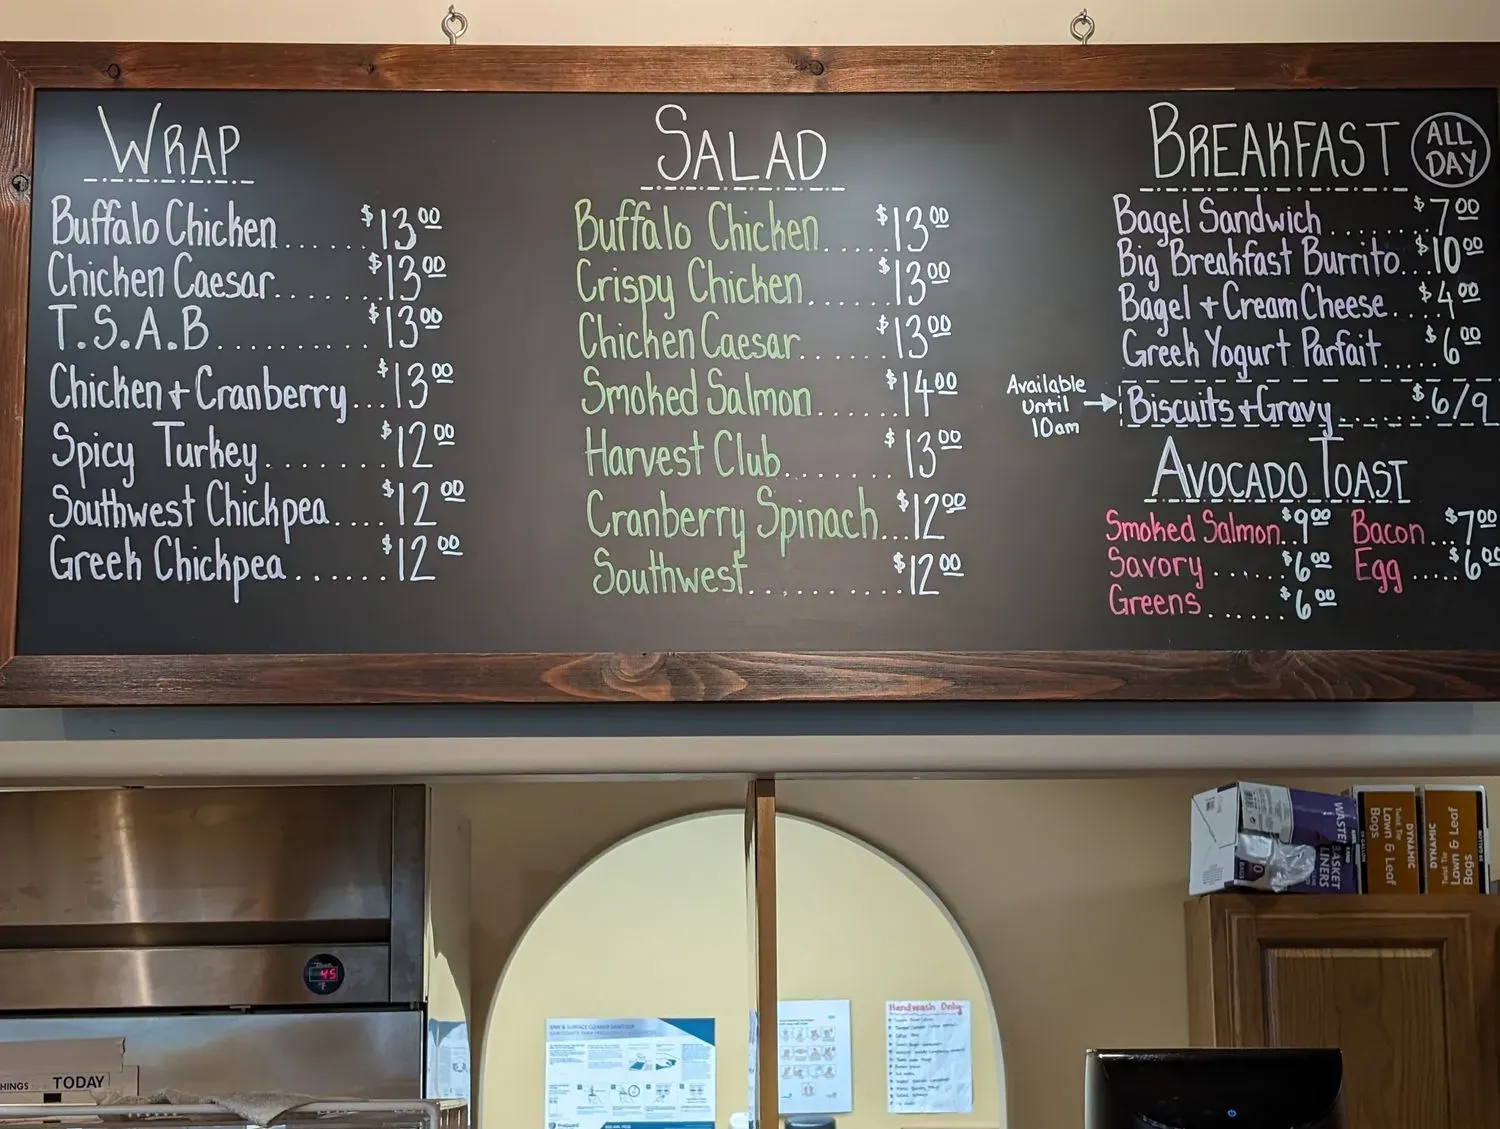 WRAP
Buffalo Chicken......$13.00
Chicken Caesar.......$13.00
T.S.A.B..........$13.00
Chicken + Cranberry...$13.00
Spicy Turkey.......$12.00
Southwest Chickpea....$12.00
Greek Chickpea......$12.00
SALAD
Buffalo Chicken....$13.00
Crispy Chicken......$13.00
Chicken Caesar......$13.00
Smoked Salmon......$14.00
Harvest Club.......$13.00
Cranberry Spinach...$12.00
Southwest..........$12.00
BREAKFAST ALL DAY
Bagel Sandwich.......$7.00
Big Breakfast Burrito...$10.00
Bagel + Cream Cheese....$4.00
Greek Yogurt Parfait.....$6.00
Available until 10am → Biscuits + Gravy......$6/9
AVOCADO TOAST
Smoked Salmon..$9.00 Bacon...$7.00
Savory......$6.00 Egg.....$6.00
Greens......$6.00
WASTE BASKET LINERS
DYNAMIC Twist Tie Lawn & Leaf Bags
DYNAMIC Twist Tie Lawn & Leaf Bags
45 °F
Handwash Only
HINGS TODAY